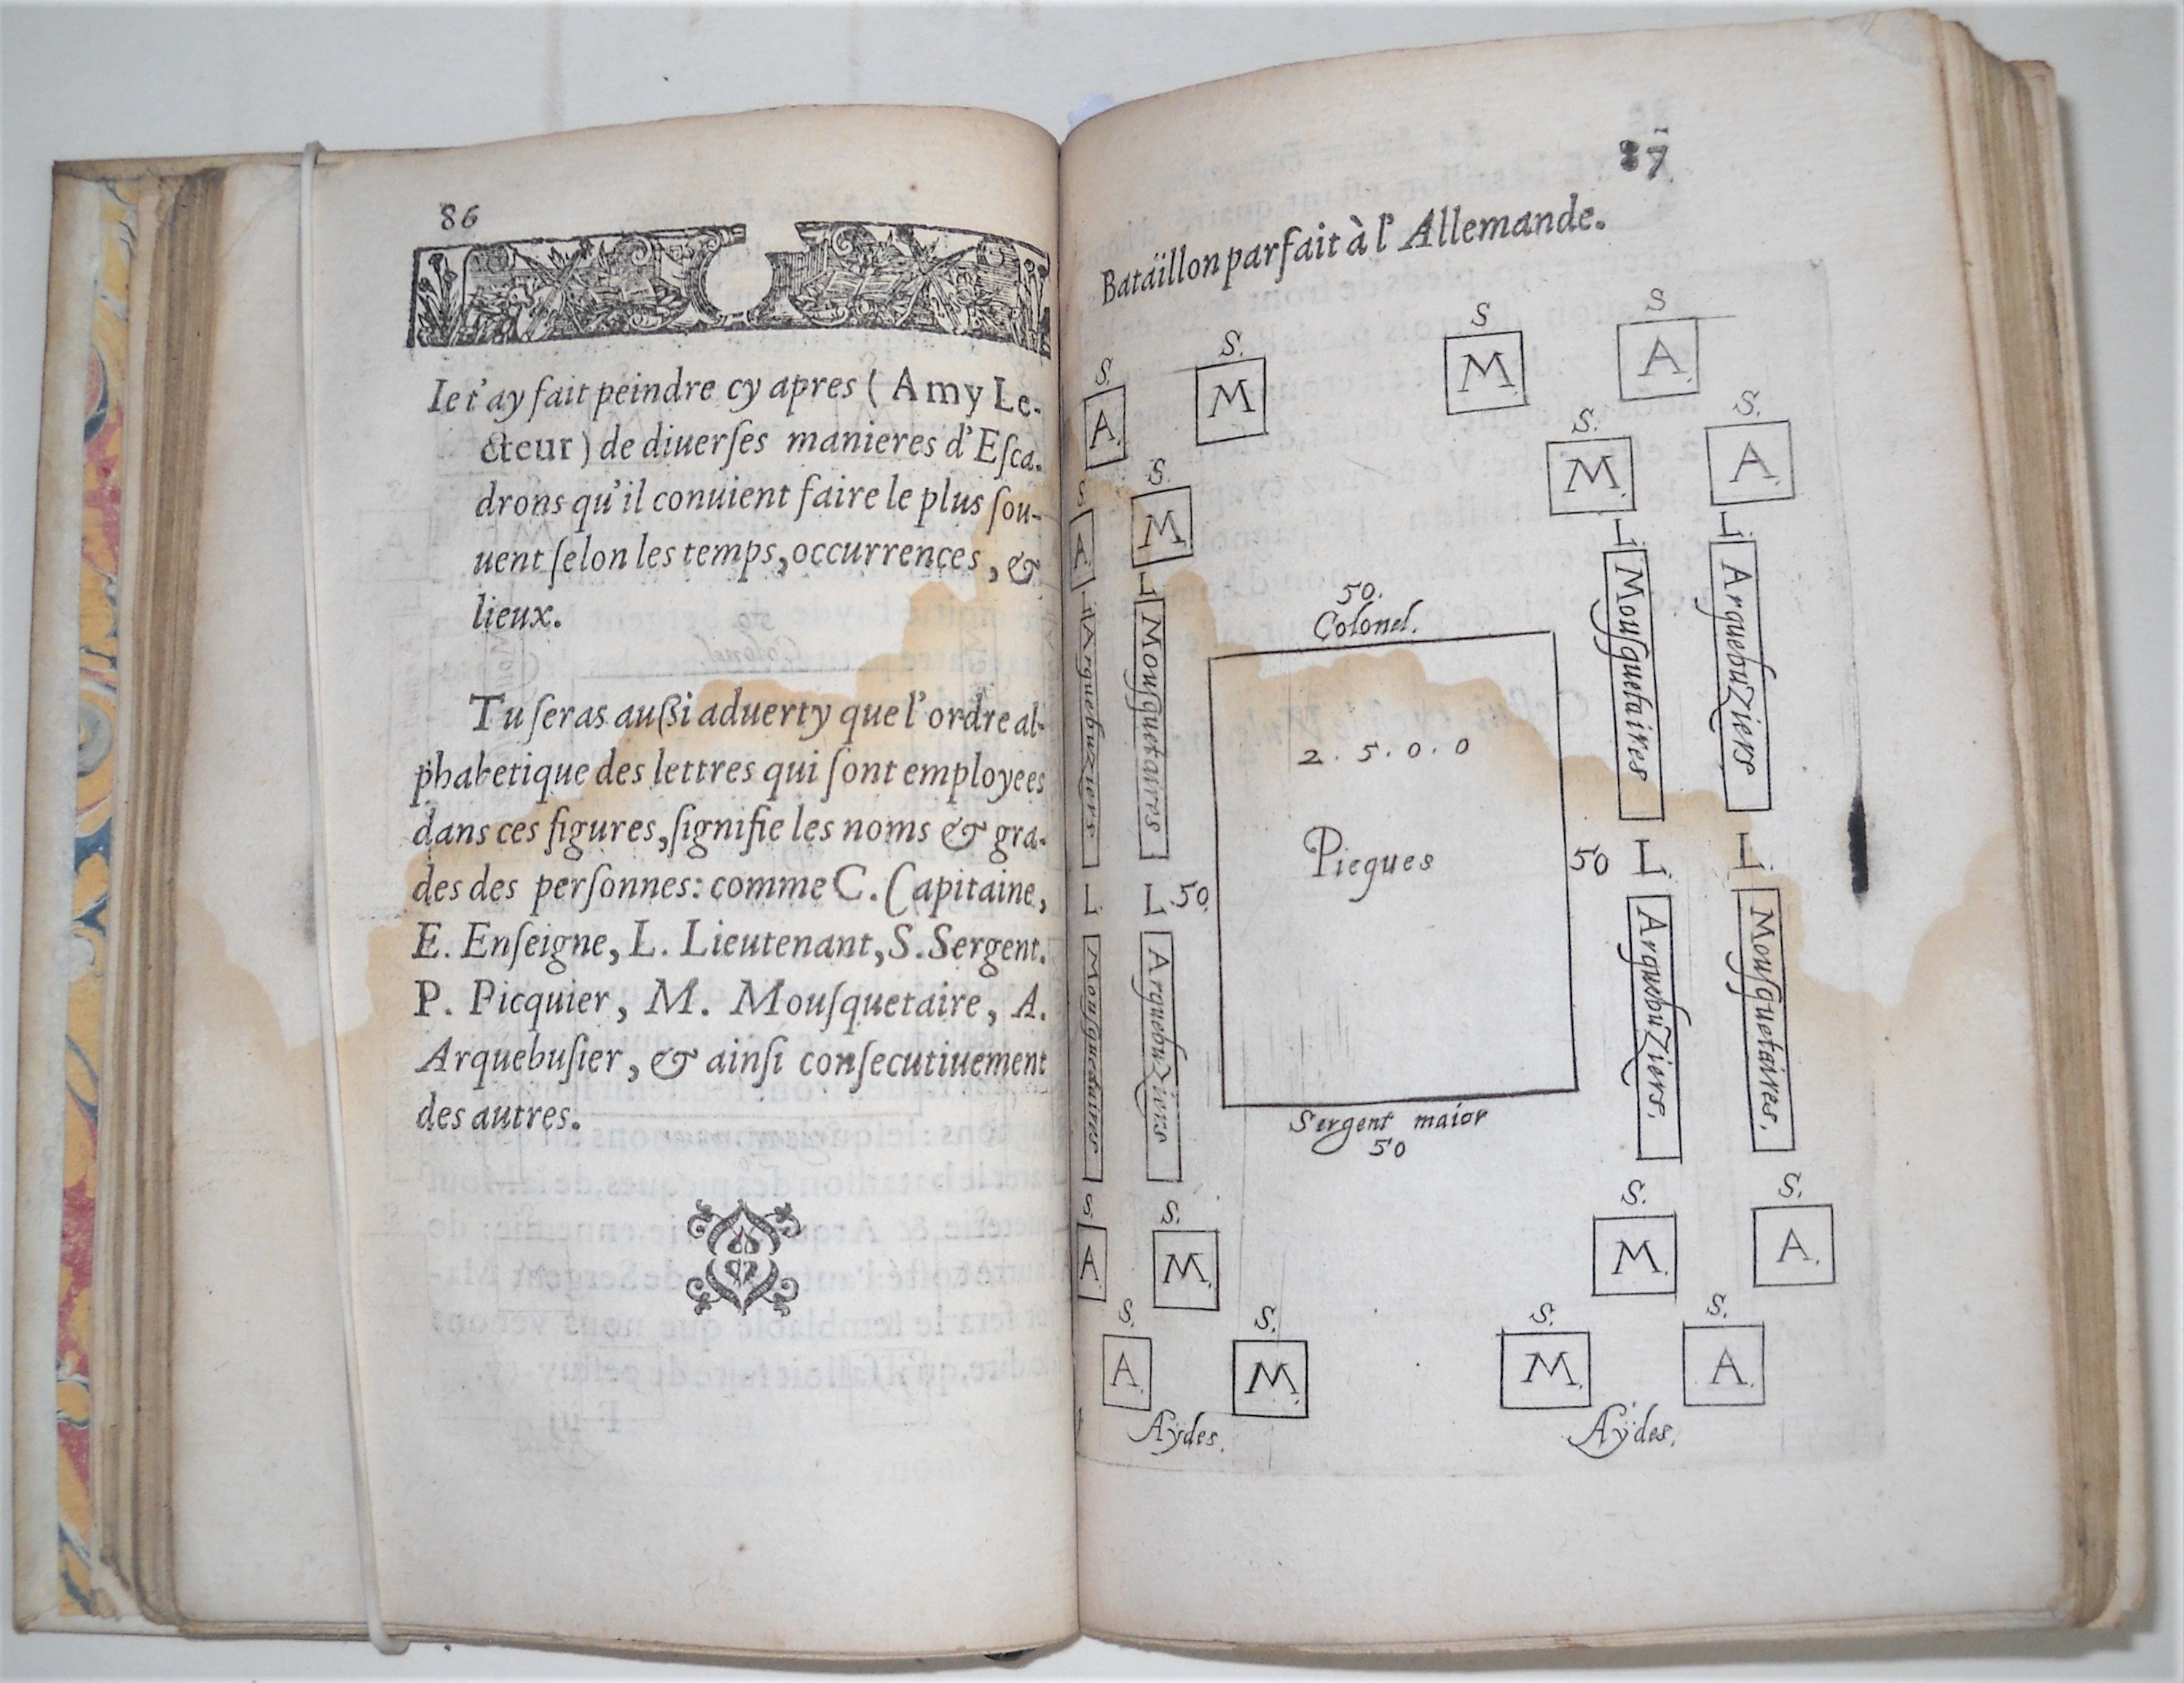 86
Ie t'ay fait peindre cy apres ( Amy Le-
cteur ) de diuerſes manieres d'Eſca-
drons qu'il conuient faire le plus ſou-
uent ſelon les temps, occurrences, &
lieux.
Tu ſeras auſſi aduerty que l'ordre al-
phabetique des lettres qui ſont employees
dans ces figures, ſignifie les noms & gra-
des des perſonnes: comme C. Capitaine,
E. Enſeigne, L. Lieutenant, S. Sergent.
P. Picquier, M. Mouſquetaire, A.
Arquebuſier, & ainſi conſecutiuement
des autres.
87
Bataïllon parfait à l'Allemande.
S. S. S S
A. M M. A.
S S. S. S.
A M. M. A.
L L L L
Arquebuziers Mouſquetaires Mouſquetaires Arquebuziers
50.
Colonel.
2. 5. 0. 0
Piegues
L. L. 50. 50 L. L.
Mouſquetaires Arquebuziers Arquebuziers, Mouſquetaires,
Sergent maior
50
S. S. S. S.
A. M. M. A.
S. S. S. S.
A. M. M. A.
Aÿdes. Aÿdes.